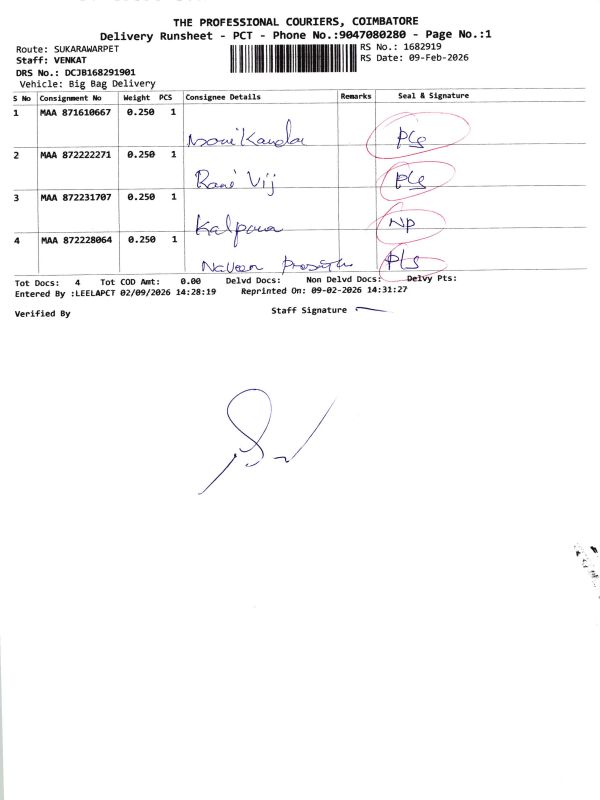 THE PROFESSIONAL COURIERS, COIMBATORE
Delivery Runsheet - PCT - Phone No.:9047080280 - Page No.:1
Route: SUKARAWARPET
RS No.: 1682919
Staff: VENKAT
RS Date: 09-Feb-2026
DRS No.: DCJB168291901
Vehicle: Big Bag Delivery
S No Consignment No Weight PCS Consignee Details Remarks Seal & Signature
1 MAA 871610667 0.250 1
2 MAA 872222271 0.250 1
Rani Vij
3 MAA 872231707 0.250 1
Kalpana NP
4 MAA 872228064 0.250 1
Naveen
Tot Docs: 4 Tot COD Amt: 0.00 Delvd Docs: Non Delvd Docs: Delvy Pts:
Entered By :LEELAPCT 02/09/2026 14:28:19 Reprinted On: 09-02-2026 14:31:27
Verified By Staff Signature